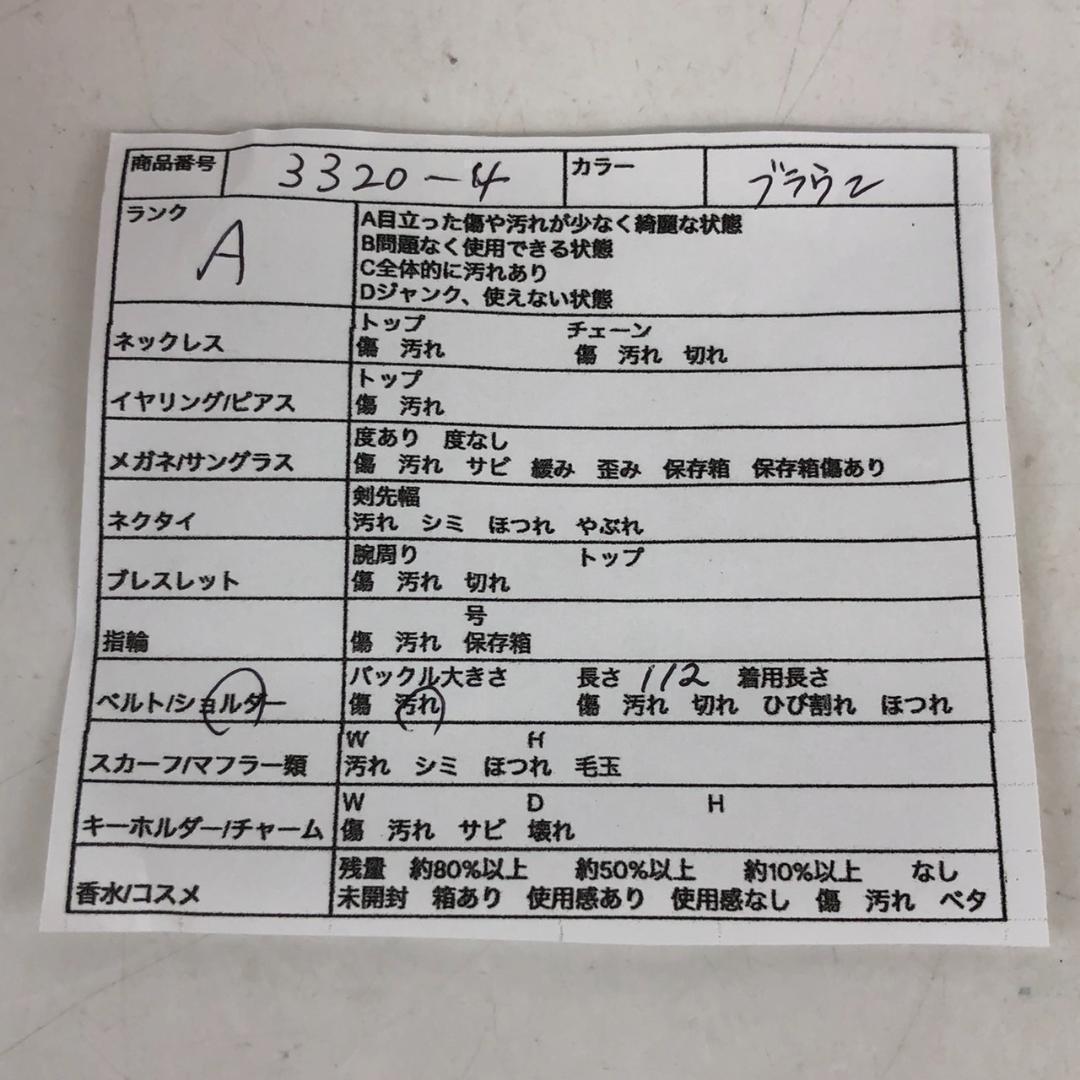 商品番号 3320-4 カラー ブラウン
ランク A
A目立った傷や汚れが少なく綺麗な状態
B問題なく使用できる状態
C全体的に汚れあり
Dジャンク、使えない状態
ネックレス
トップ チェーン
傷 汚れ 傷 汚れ 切れ
イヤリング/ピアス
トップ
傷 汚れ
メガネ/サングラス
度あり 度なし
傷 汚れ サビ 緩み 歪み 保存箱 保存箱傷あり
ネクタイ
剣先幅
汚れ シミ ほつれ やぶれ
ブレスレット
腕周り トップ
傷 汚れ 切れ
指輪
号
傷 汚れ 保存箱
ベルト/ショルダー
バックル大きさ 長さ 112 着用長さ
傷 汚れ 傷 汚れ 切れ ひび割れ ほつれ
スカーフ/マフラー類
W H
汚れ シミ ほつれ 毛玉
キーホルダー/チャーム
W D H
傷 汚れ サビ 壊れ
香水/コスメ
残量 約80%以上 約50%以上 約10%以上 なし
未開封 箱あり 使用感あり 使用感なし 傷 汚れ ベタ